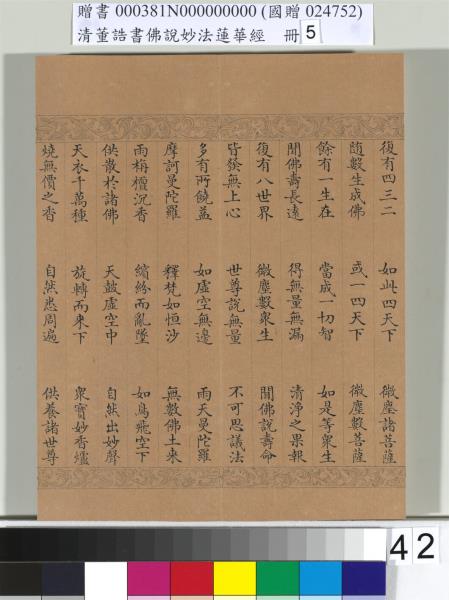 贈書 000381N000000000 (國贈 024752)
清董誥書佛說妙法蓮華經 冊 5
復有四三二 如此四天下 微塵諸菩薩
隨數生成佛 或一四天下 微塵數菩薩
餘有一生在 當成一切智 如是等眾生
聞佛壽長遠 得無量無漏 清淨之果報
復有八世界 微塵數眾生 聞佛說壽命
皆發無上心 世尊說無量 不可思議法
多有所饒益 如虛空無邊 雨天曼陀羅
摩訶曼陀羅 釋梵如恒沙 無數佛土來
雨栴檀沉香 繽紛而亂墜 如鳥飛空下
供散於諸佛 天鼓虛空中 自然出妙聲
天衣千萬種 旋轉而來下 眾寶妙香爐
燒無價之香 自然悉周遍 供養諸世尊
42